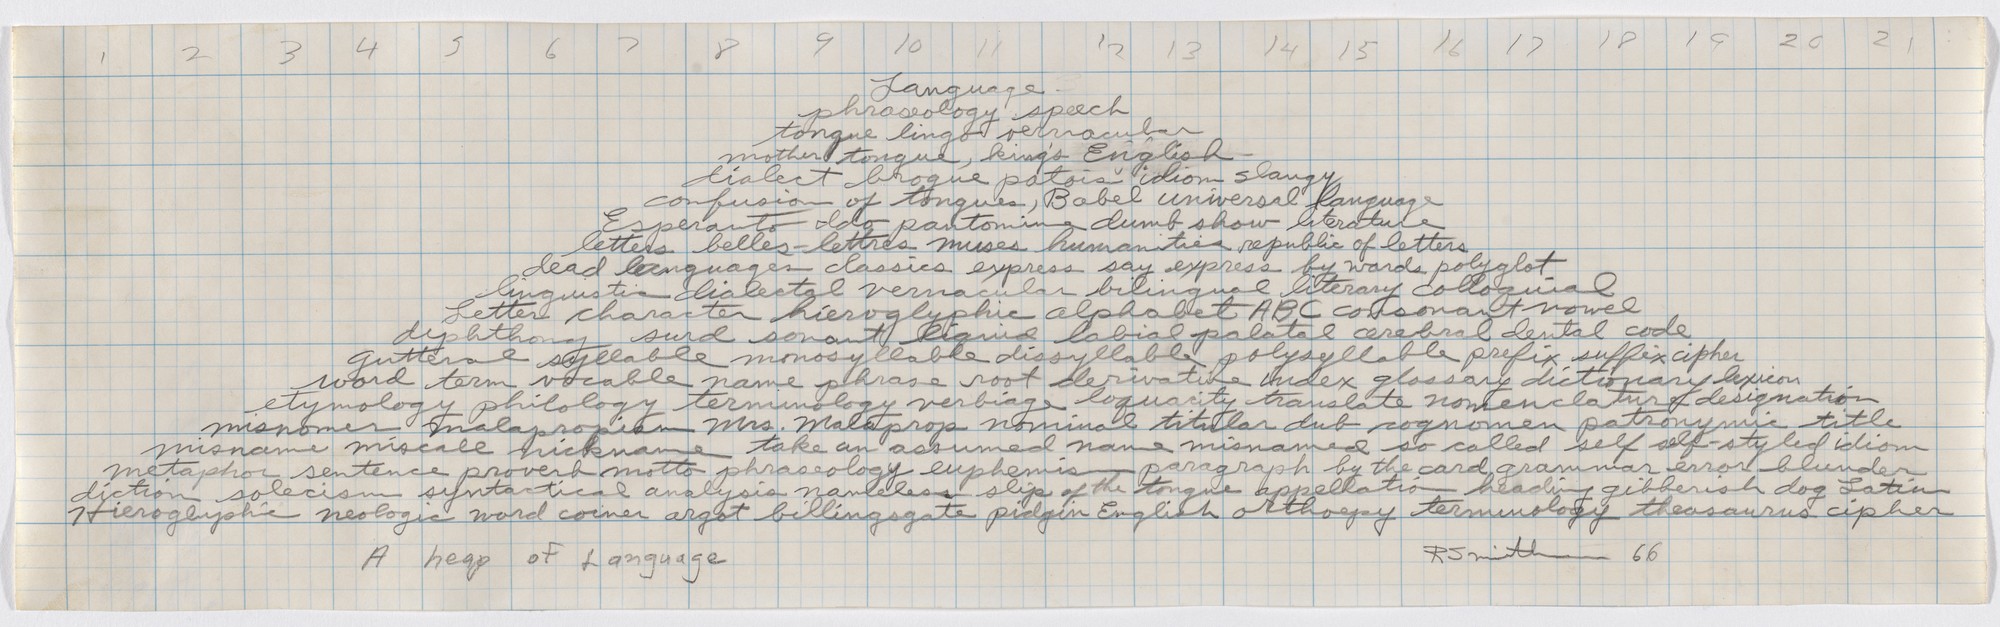 1 2 3 4 5 6 7 8 9 10 11 12 13 14 15 16 17 18 19 20 21
Language
phraseology speech
tongue lingo vernacular
mother tongue, king's English
dialect brogue patois idiom slangy
confusion of tongues, Babel universal language
Esperanto Ido pantomime dumb show literature
letters belles-lettres muses humanities republic of letters
dead languages classics express say express by words polyglot
linguistic dialectal vernacular bilingual literary colloquial
Letter character hieroglyphic alphabet ABC consonant vowel
diphthong surd sonant liquid labial palatal cerebral dental code
gutteral syllable monosyllable dissyllable polysyllable prefix suffix cipher
word term vocable name phrase root derivative index glossary dictionary lexicon
etymology philology terminology verbiage loquacity translate nomenclature designation
misnomer malapropism Mrs. Malaprop nominal titular dub cognomen patronymic title
misname miscall nickname take an assumed name misnamed so called self self-styled idiom
metaphor sentence proverb motto phraseology euphemism paragraph by the card grammar error blunder
diction solecism syntactical analysis nameless slip of the tongue appellation heading gibberish dog Latin
Hieroglyphic neologic word coiner argot billingsgate pidgin English orthoepy terminology theosaurus cipher
A heap of Language
RSmithson 66